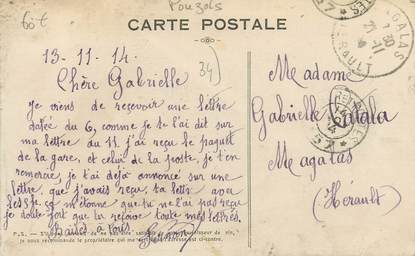 60t
Pouzols
CARTE POSTALE
13-11-14. 34)
Chère Gabrielle
Je viens de recevoir une lettre
datée du 6, comme je te l'ai dit sur
ma lettre du 11 j'ai reçu le paquet
de la gare, et celui de la poste, je t'en
remercie, je t'ai déjà annoncé sur une
lettre, que j'avais reçu, ta lettre avec
les 5f, ça m'étonne que tu ne l'ai pas reçu
je doute fort que tu reçoive toute mes lettres.
Baisés à tous
Madame
Gabrielle Catala
Magalas
(Hérault)
MAGALAS
7 30
21-11
HÉRAULT